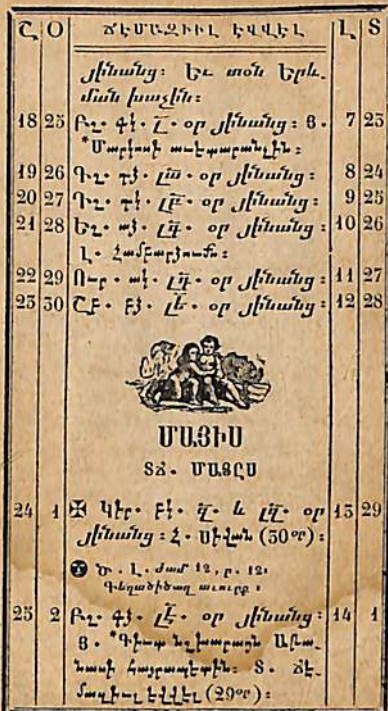 Շ Օ ՃԷՄԱԶԻԻԼ ԷՎՎԷԼ Լ Տ
յինանց։ Եւ տօն Երև֊
ման խաչին։
18 25 Բշ. գձ. լ. օր յինանց։ Յ. 7 23
*Մարկոսի աւետարանչին։
19 26 Գշ. դձ. լա. օր յինանց։ 8 24
20 27 Դշ. դկ. լբ. օր յինանց։ 9 25
21 28 Եշ. աձ. լգ. օր յինանց։ 10 26
Լ. Համբարձումն։
22 29 Ուր. ակ. լդ. օր յինանց։ 11 27
23 30 Շբ. բձ. լե. օր յինանց։ 12 28
ՄԱՅԻՍ
ՏՃ. ՄԱՅԸՍ
24 1 Կիր. բկ. և լզ. օր 13 29
յինանց։ Հ. ՍԻՎԱՆ (30օր)։
Ծ. Լ. ժամ 12, ր. 12։
Գեղածիծաղ աւուրք։
25 2 Բշ. գձ. լէ. օր յինանց։ 14 1
Յ. *Գիւտ նշխարաց Աթա֊
նասի հայրապետին։ Տ. ՃԷ֊
մազիւլ էվվէլ (29օր)։